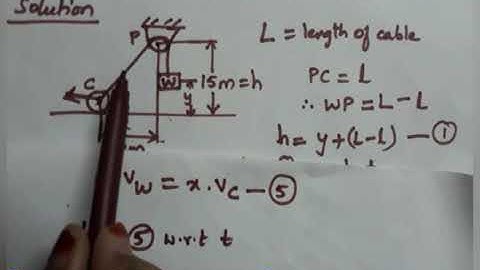 Solution
P
C
W
15m=h
y
L = length of cable
PC = L
∴ WP = L-L
h = y+(L-L) — ①
VW = x.VC — ⑤
⑤ w.r.t t